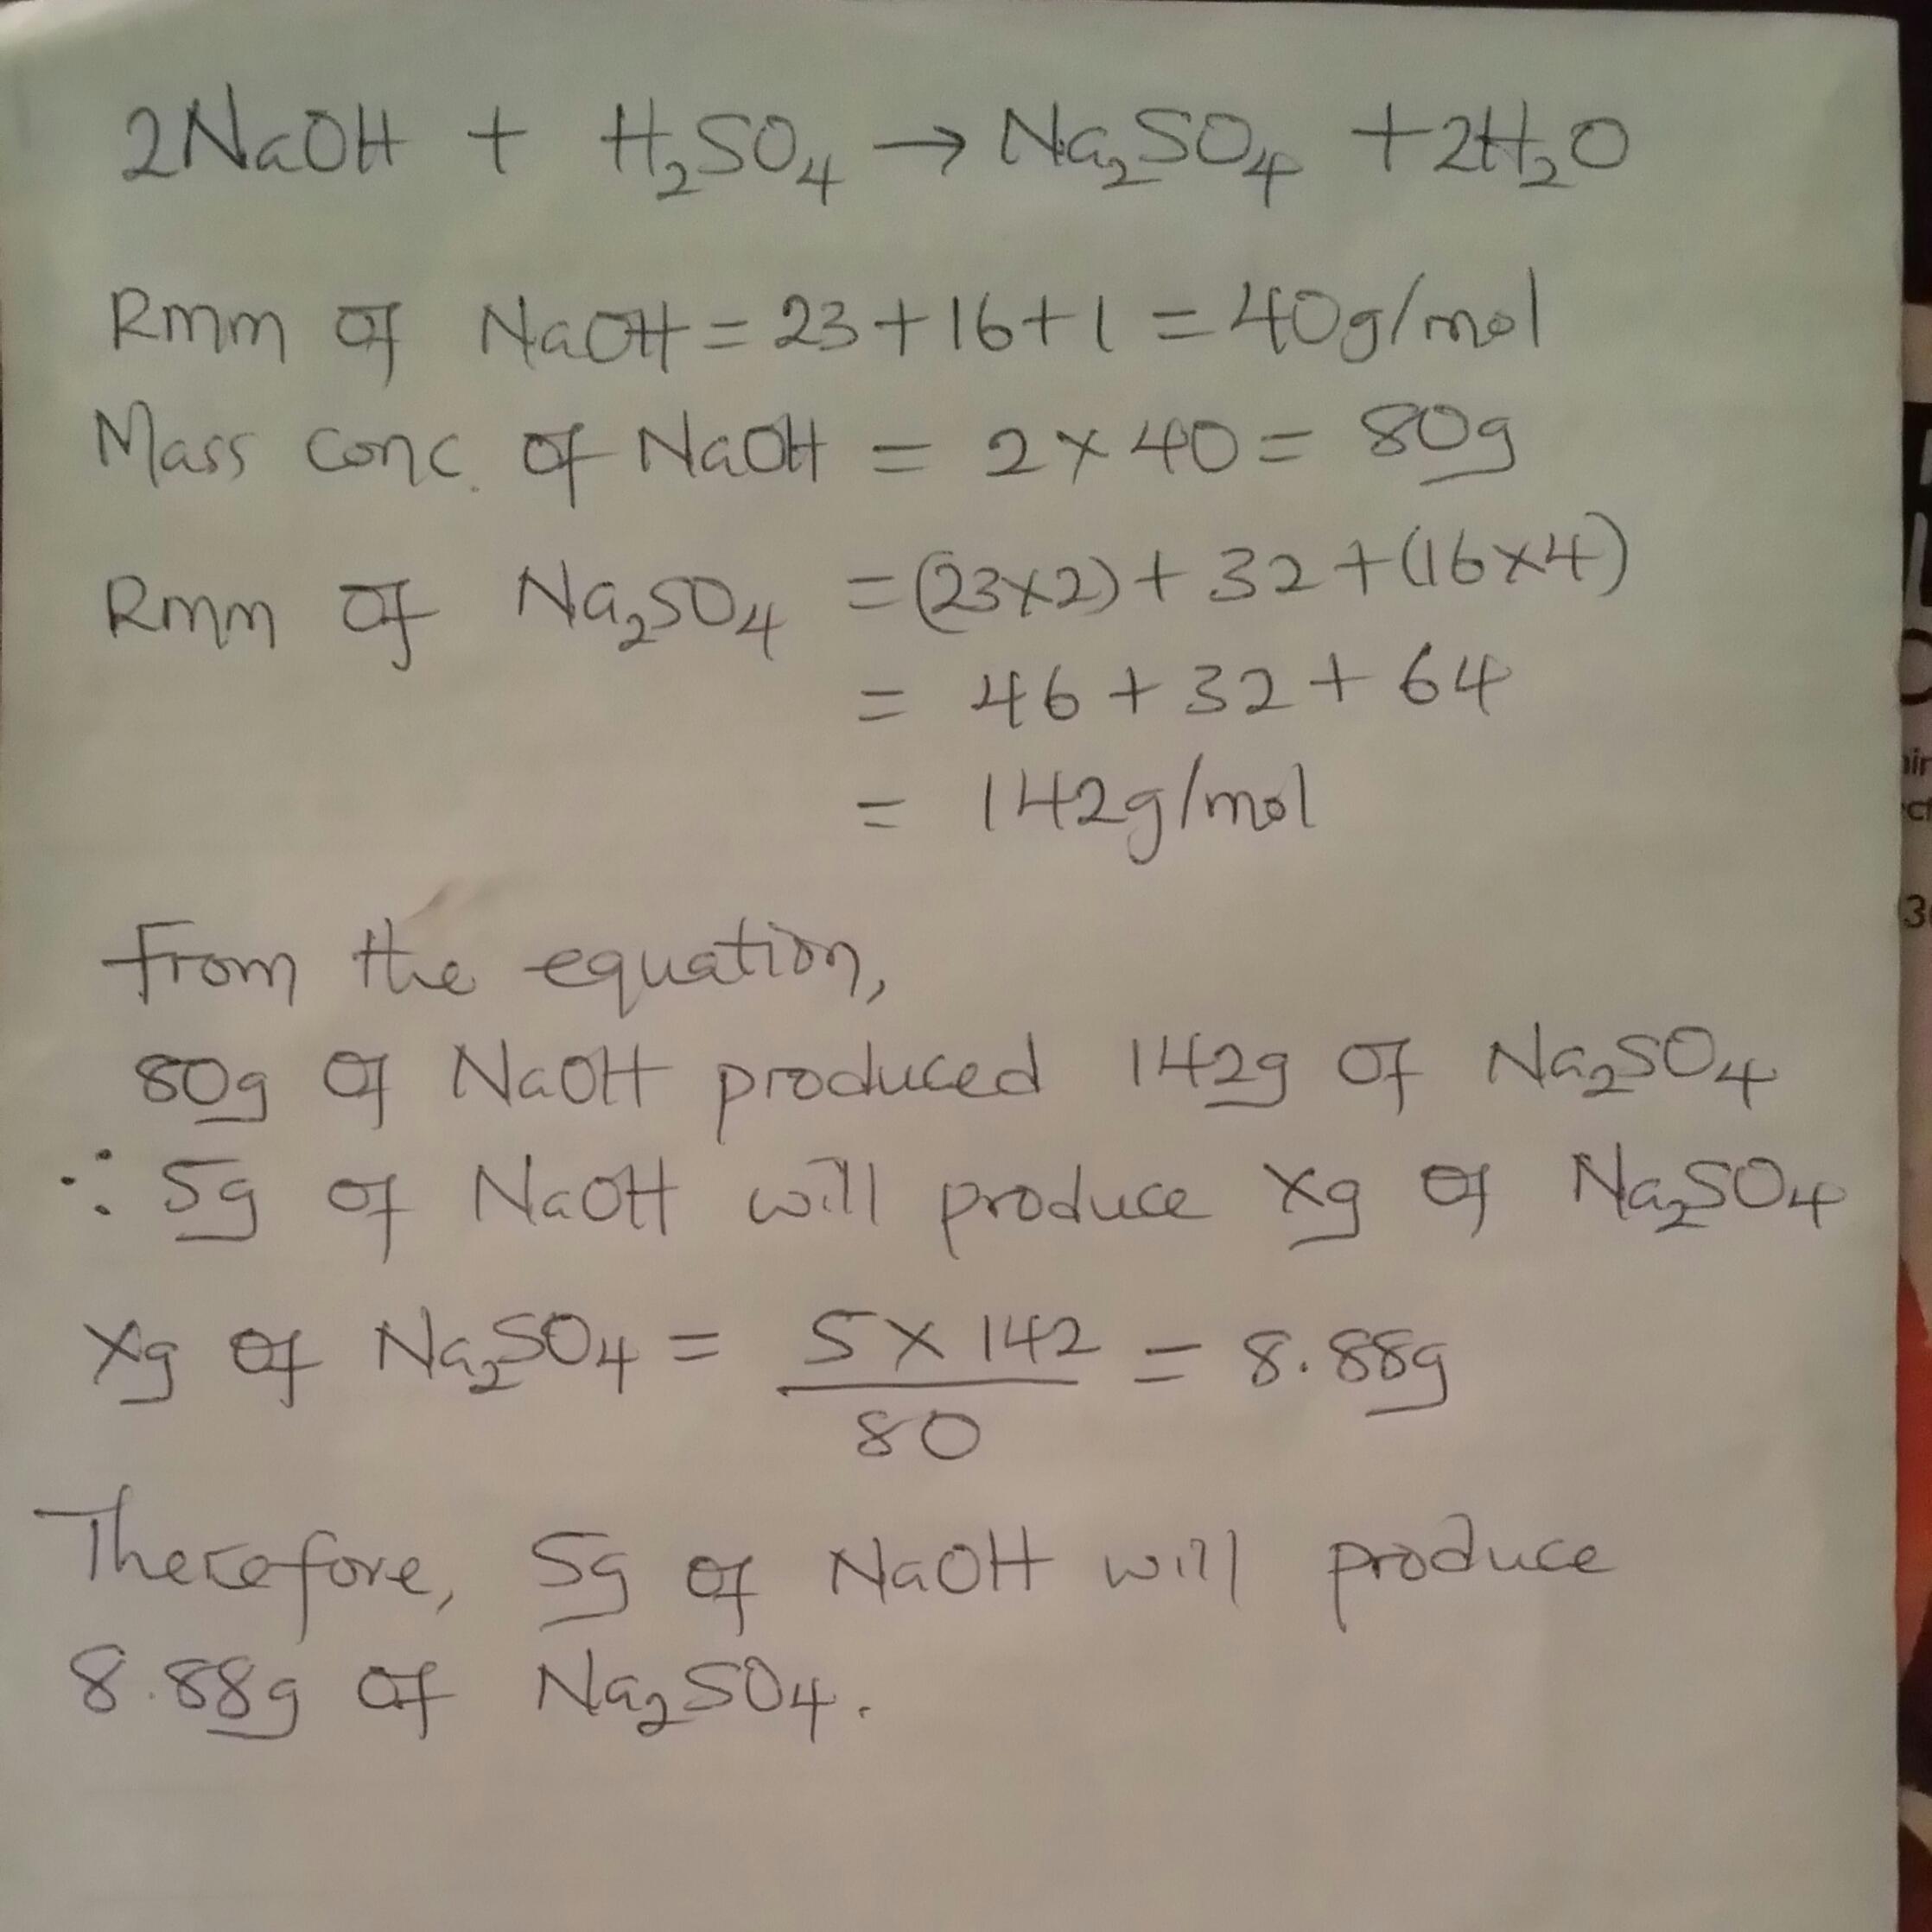 2NaOH + H₂SO₄ → Na₂SO₄ + 2H₂O
Rmm of NaOH = 23 + 16 + 1 = 40g/mol
Mass conc. of NaOH = 2 × 40 = 80g
Rmm of Na₂SO₄ = (23×2) + 32 + (16×4)
= 46 + 32 + 64
= 142g/mol
From the equation,
80g of NaOH produced 142g of Na₂SO₄
∴ 5g of NaOH will produce xg of Na₂SO₄
xg of Na₂SO₄ = 5 × 142 = 8.88g
80
Therefore, 5g of NaOH will produce
8.88g of Na₂SO₄.